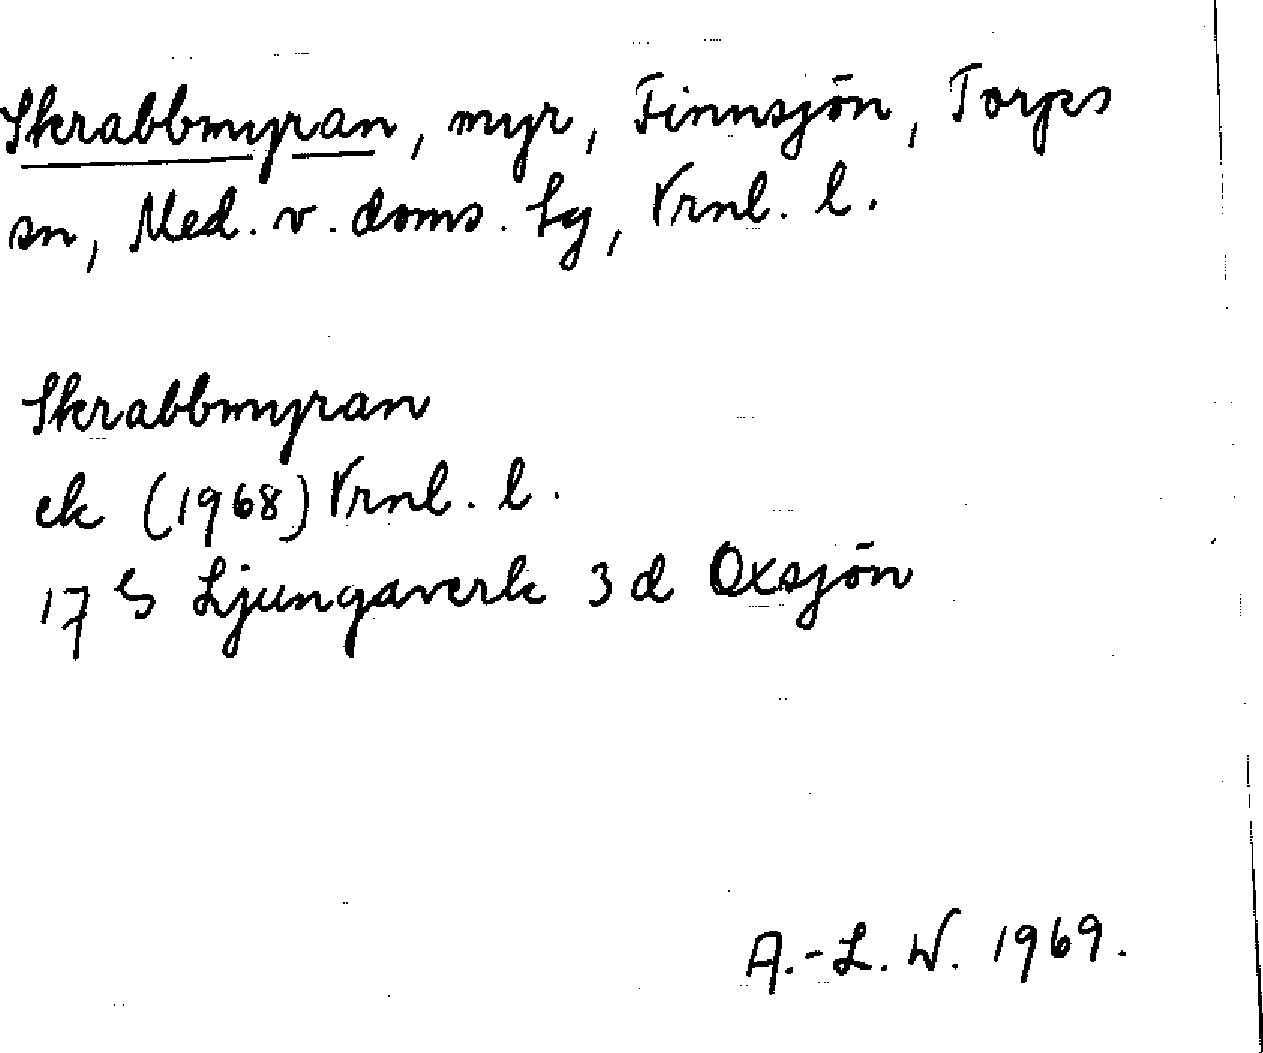 Skrabbmyran, myr, Finnsjön, Torps
sn, Med. v. doms. hg, Vrnl. l.
Skrabbmyran
ek (1968) Vrnl. l.
17 G Ljungaverk 3 d Oxsjön
A.-L. W. 1969.